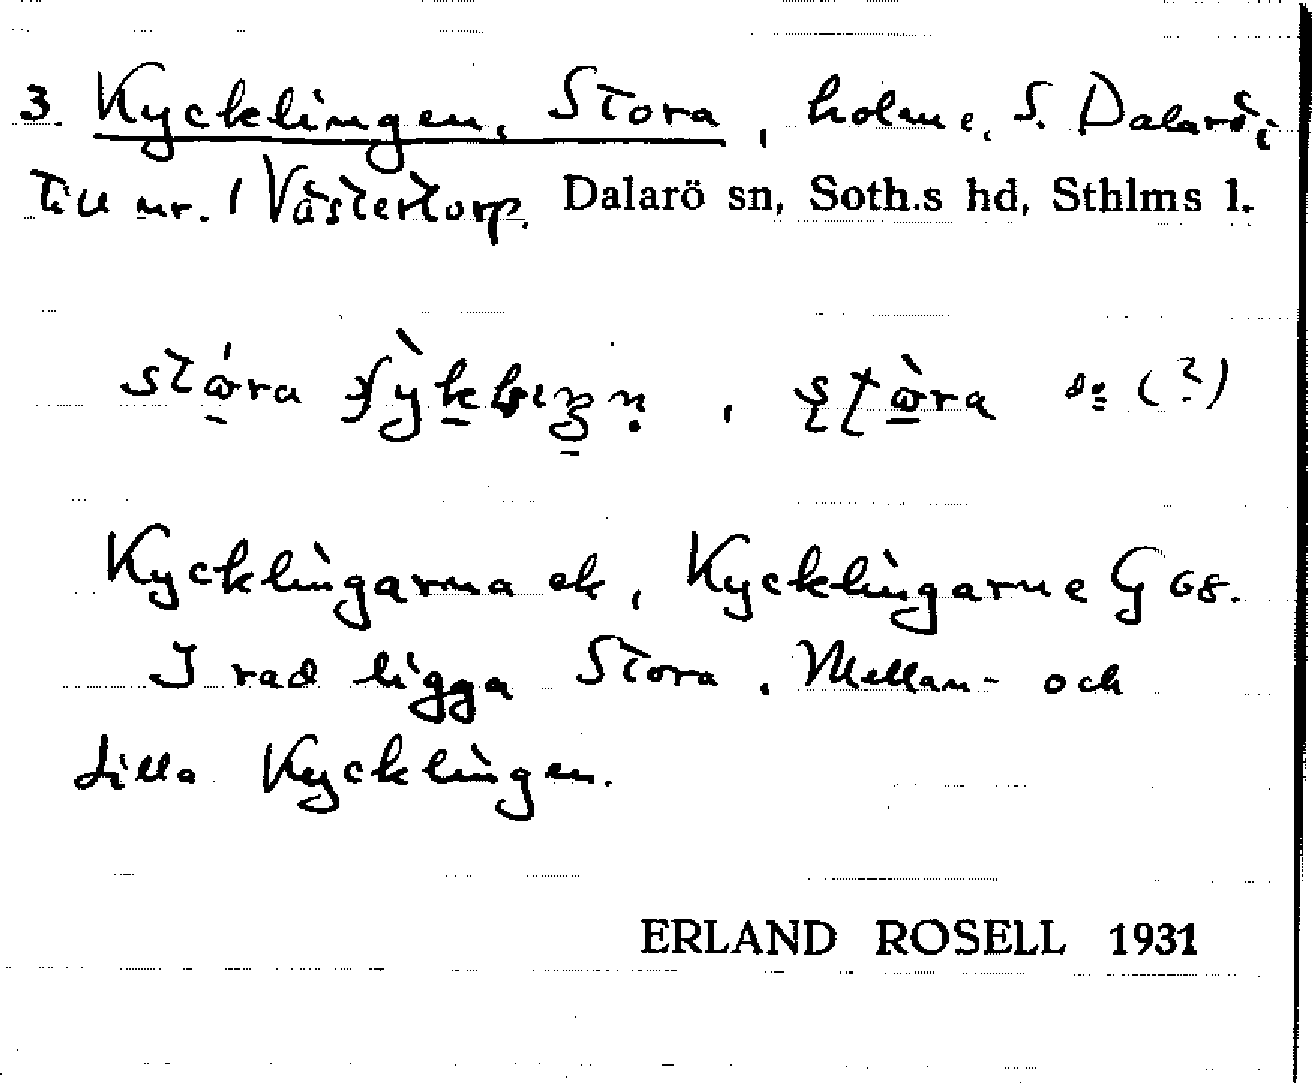 3. Kycklingen, Stora, holme, S. Dalarö;
till nr. 1 Västertorp. Dalarö sn, Soth.s hd, Sthlms l.
stora , stora (?)
Kycklingarna ek, Kycklingarne G 68.
I rad ligga Stora, Mellan- och
Lilla Kycklingen.
ERLAND ROSELL 1931